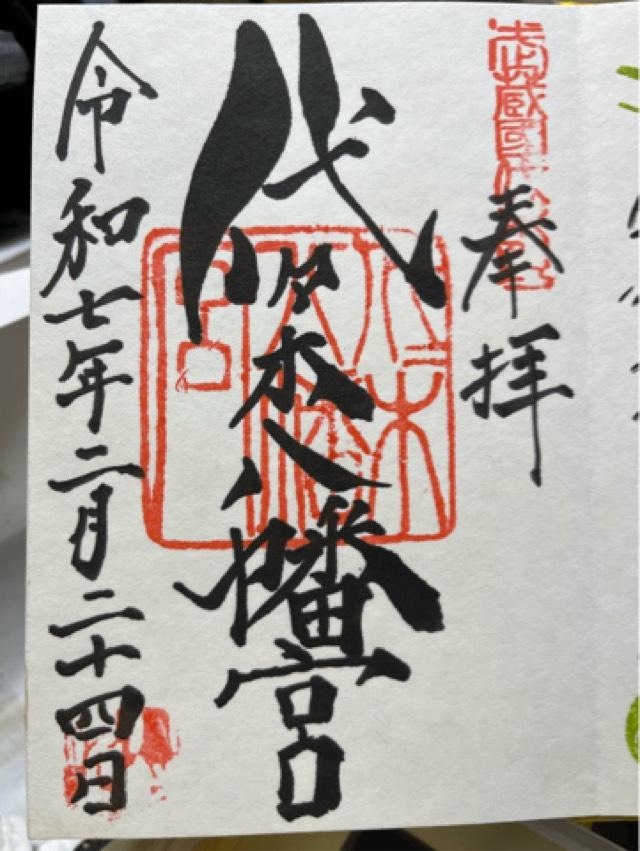 奉拝
代々木八幡宮
令和七年二月二十四日